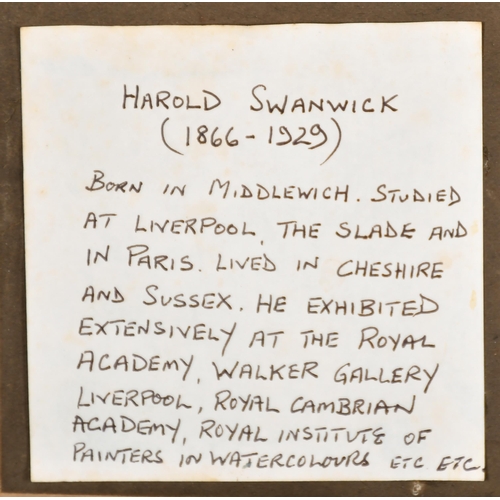 HAROLD SWANWICK
(1866-1929)
BORN IN MIDDLEWICH. STUDIED
AT LIVERPOOL, THE SLADE AND
IN PARIS. LIVED IN CHESHIRE
AND SUSSEX. HE EXHIBITED
EXTENSIVELY AT THE ROYAL
ACADEMY, WALKER GALLERY
LIVERPOOL, ROYAL CAMBRIAN
ACADEMY, ROYAL INSTITUTE OF
PAINTERS IN WATERCOLOURS ETC ETC.